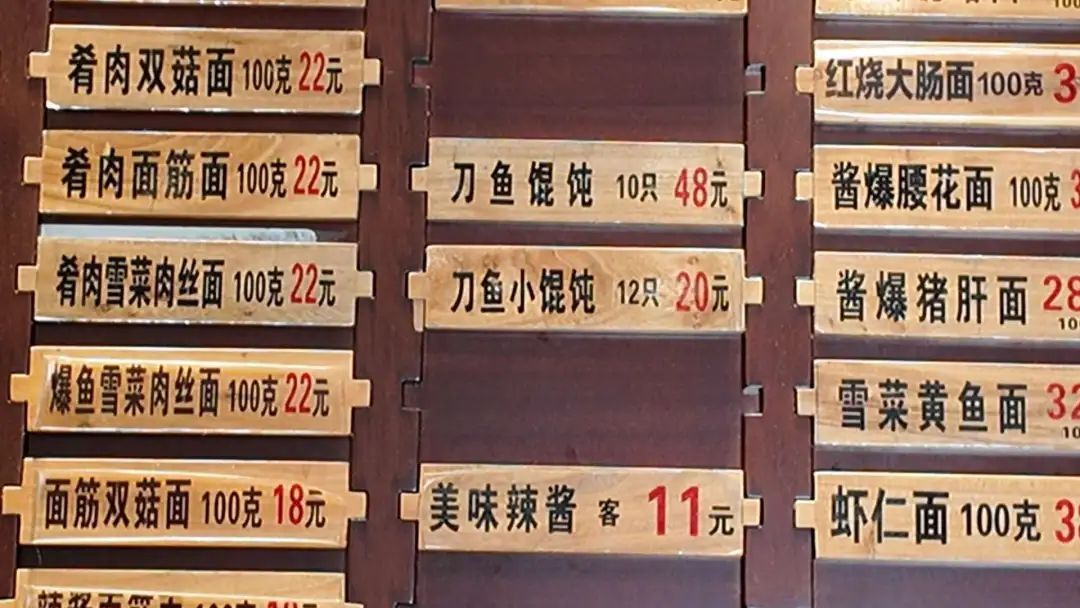 肴肉双菇面 100克 22元
肴肉面筋面 100克 22元
肴肉雪菜肉丝面 100克 22元
爆鱼雪菜肉丝面 100克 22元
面筋双菇面 100克 18元
刀鱼馄饨 10只 48元
刀鱼小馄饨 12只 20元
美味辣酱 客 11元
红烧大肠面 100克 3
酱爆腰花面 100克 3
酱爆猪肝面 28
10
雪菜黄鱼面 32
10
虾仁面 100克 3